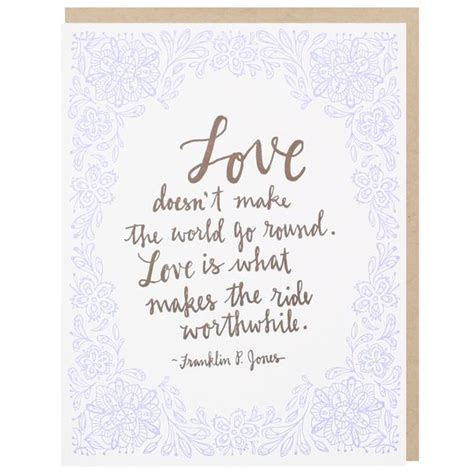 Love
doesn't make
the world go round.
Love is what
makes the ride
worthwhile.
~Franklin P. Jones